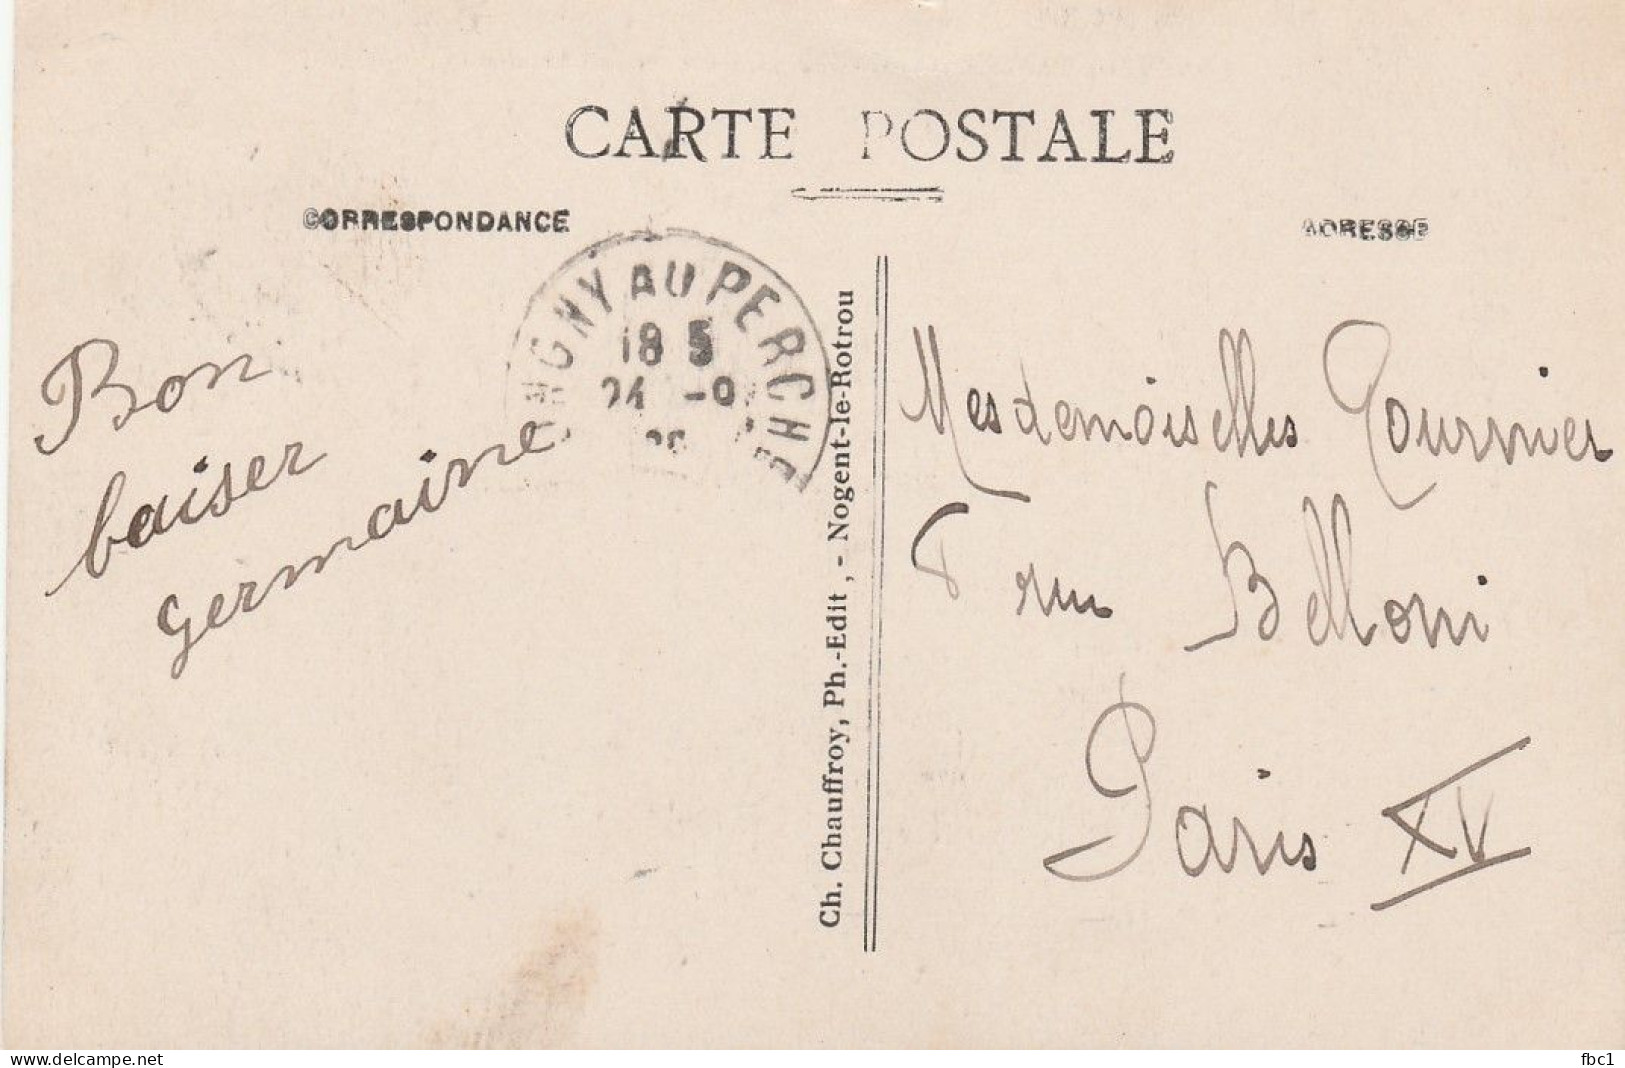 CARTE POSTALE
CORRESPONDANCE
ADRESSE
AU PERCHE
18 5
Bon
baiser
Germaine
Ch. Chauffroy, Ph.-Edit, - Nogent-le-Rotrou
Mesdemoiselles Fournier
rue Belloni
Paris XV
www.delcampe.net
fbc1